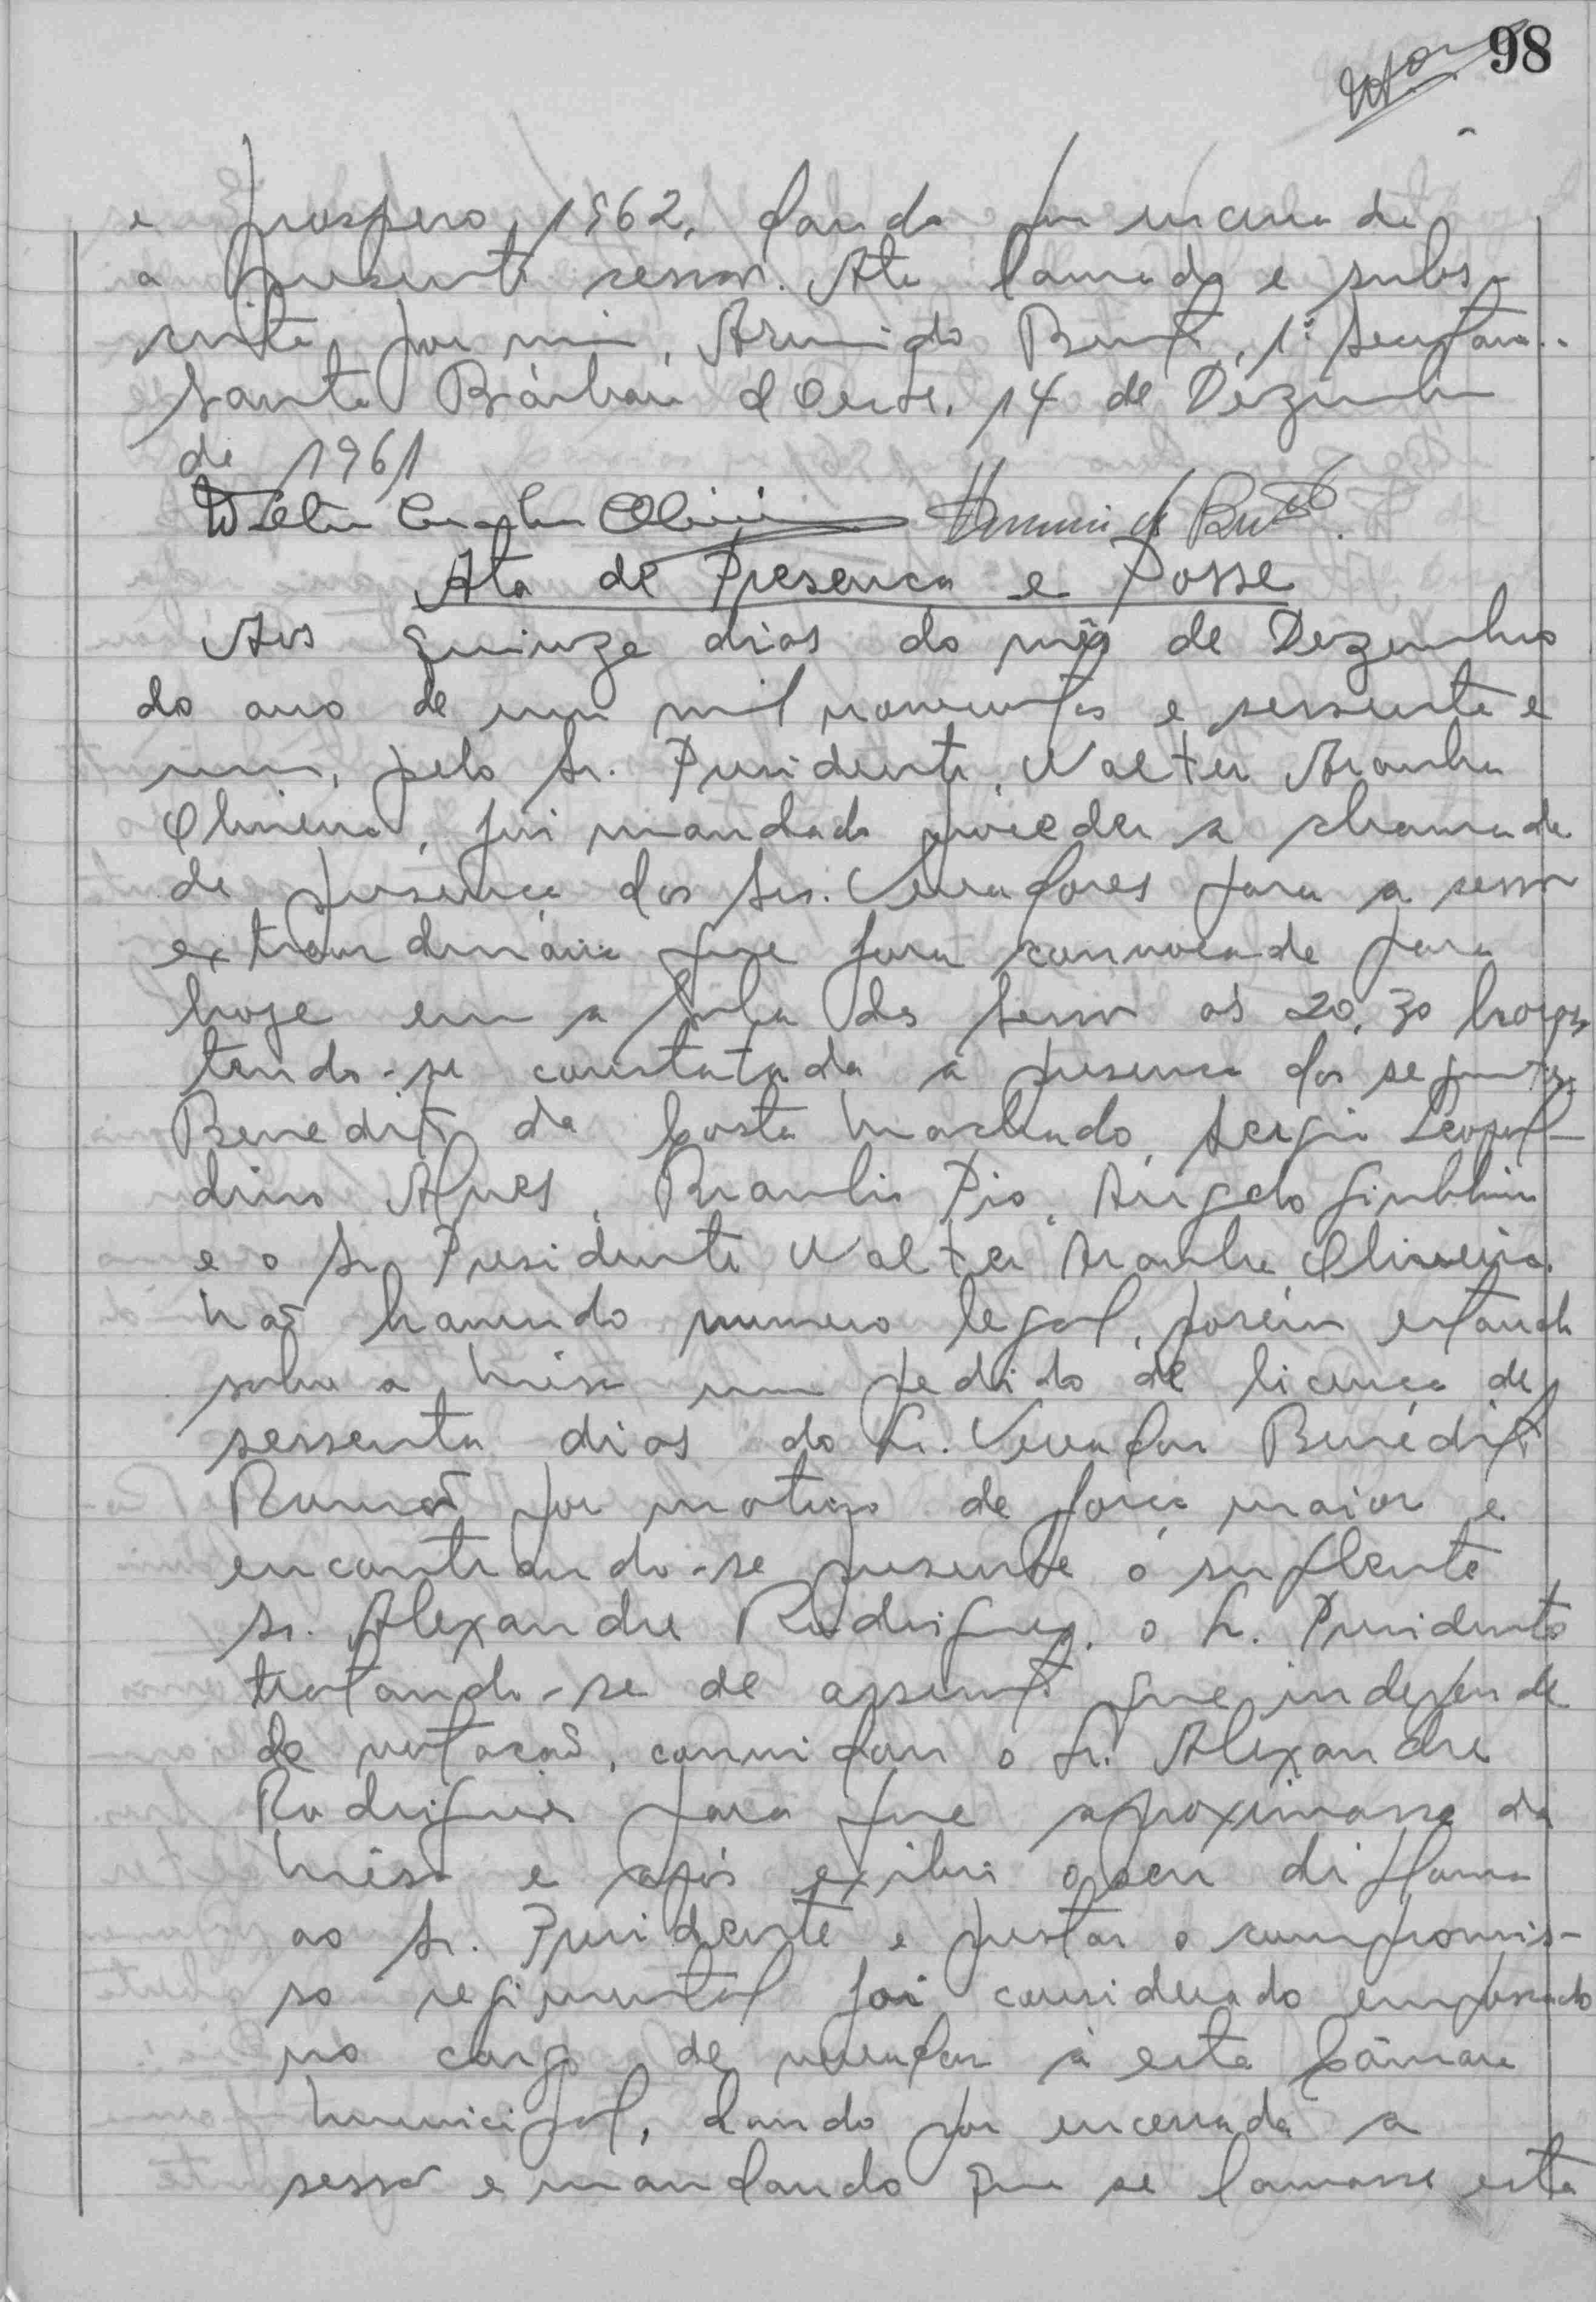 98
e prospero 1962, dando por encerrada
a presente sessão. Ata lavrada e subs-
crita por mim, Armindo Brito, 1º Secretario.
Santa Bárbara d'Oeste, 14 de Dezembro
de 1961
Walter Aranha Oliveira
Ata de Presença e Posse
Aos quinze dias do mês de Dezembro
do ano de um mil novecentos e sessenta e
um, pelo Sr. Presidente, Walter Aranha
Oliveira, foi mandado proceder a chamada
de presença dos Srs. Vereadores para a sessão
extraordinária que fora convocada para
hoje em a Sala da Sessão as 20,30 horas,
tendo-se constatada a presença dos seguintes:
Benedito da Costa Machado, Sergio Leopol-
dino Alves, Braulio Pio, Angelo Giubbina
e o Sr. Presidente Walter Aranha Oliveira.
Não havendo numero legal, porém estando
sobre a mêsa um pedido de licença de
sessenta dias do Sr. Vereador Benedito
Romão por motivo de força maior e
encontrando-se presente o suplente
sr. Alexandre Rodrigues, o Sr. Presidente
tratando-se de assunto que independe
de votação, convidou o Sr. Alexandre
Rodrigues para que aproximasse da
mêsa e após exibir o seu diploma
ao Sr. Presidente e prestar o compromis-
so regimental foi considerado empossado
no cargo de vereador à esta Câmara
Municipal, dando por encerrada a
sessão e mandando que se lavrasse esta